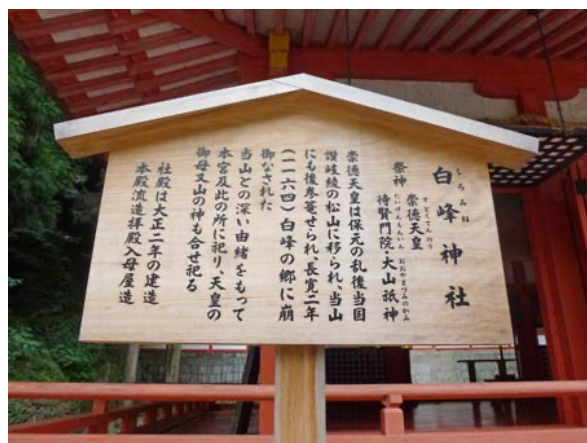 しろみね
白峰神社
すとくてんのう
祭神 崇徳天皇
たいけんもんいん おおやまづみのかみ
待賢門院・大山祇神
崇徳天皇は保元の乱後当国
讃岐綾の松山に移られ、当山
にも後参篭せられ、長寛二年
(一一六四)白峰の郷に崩
御なされた
当山との深い由緒をもって
本宮及此の所に祀り、天皇の
御母又山の神も合せ祀る
社殿は大正二年の建造
本殿流造拝殿入母屋造